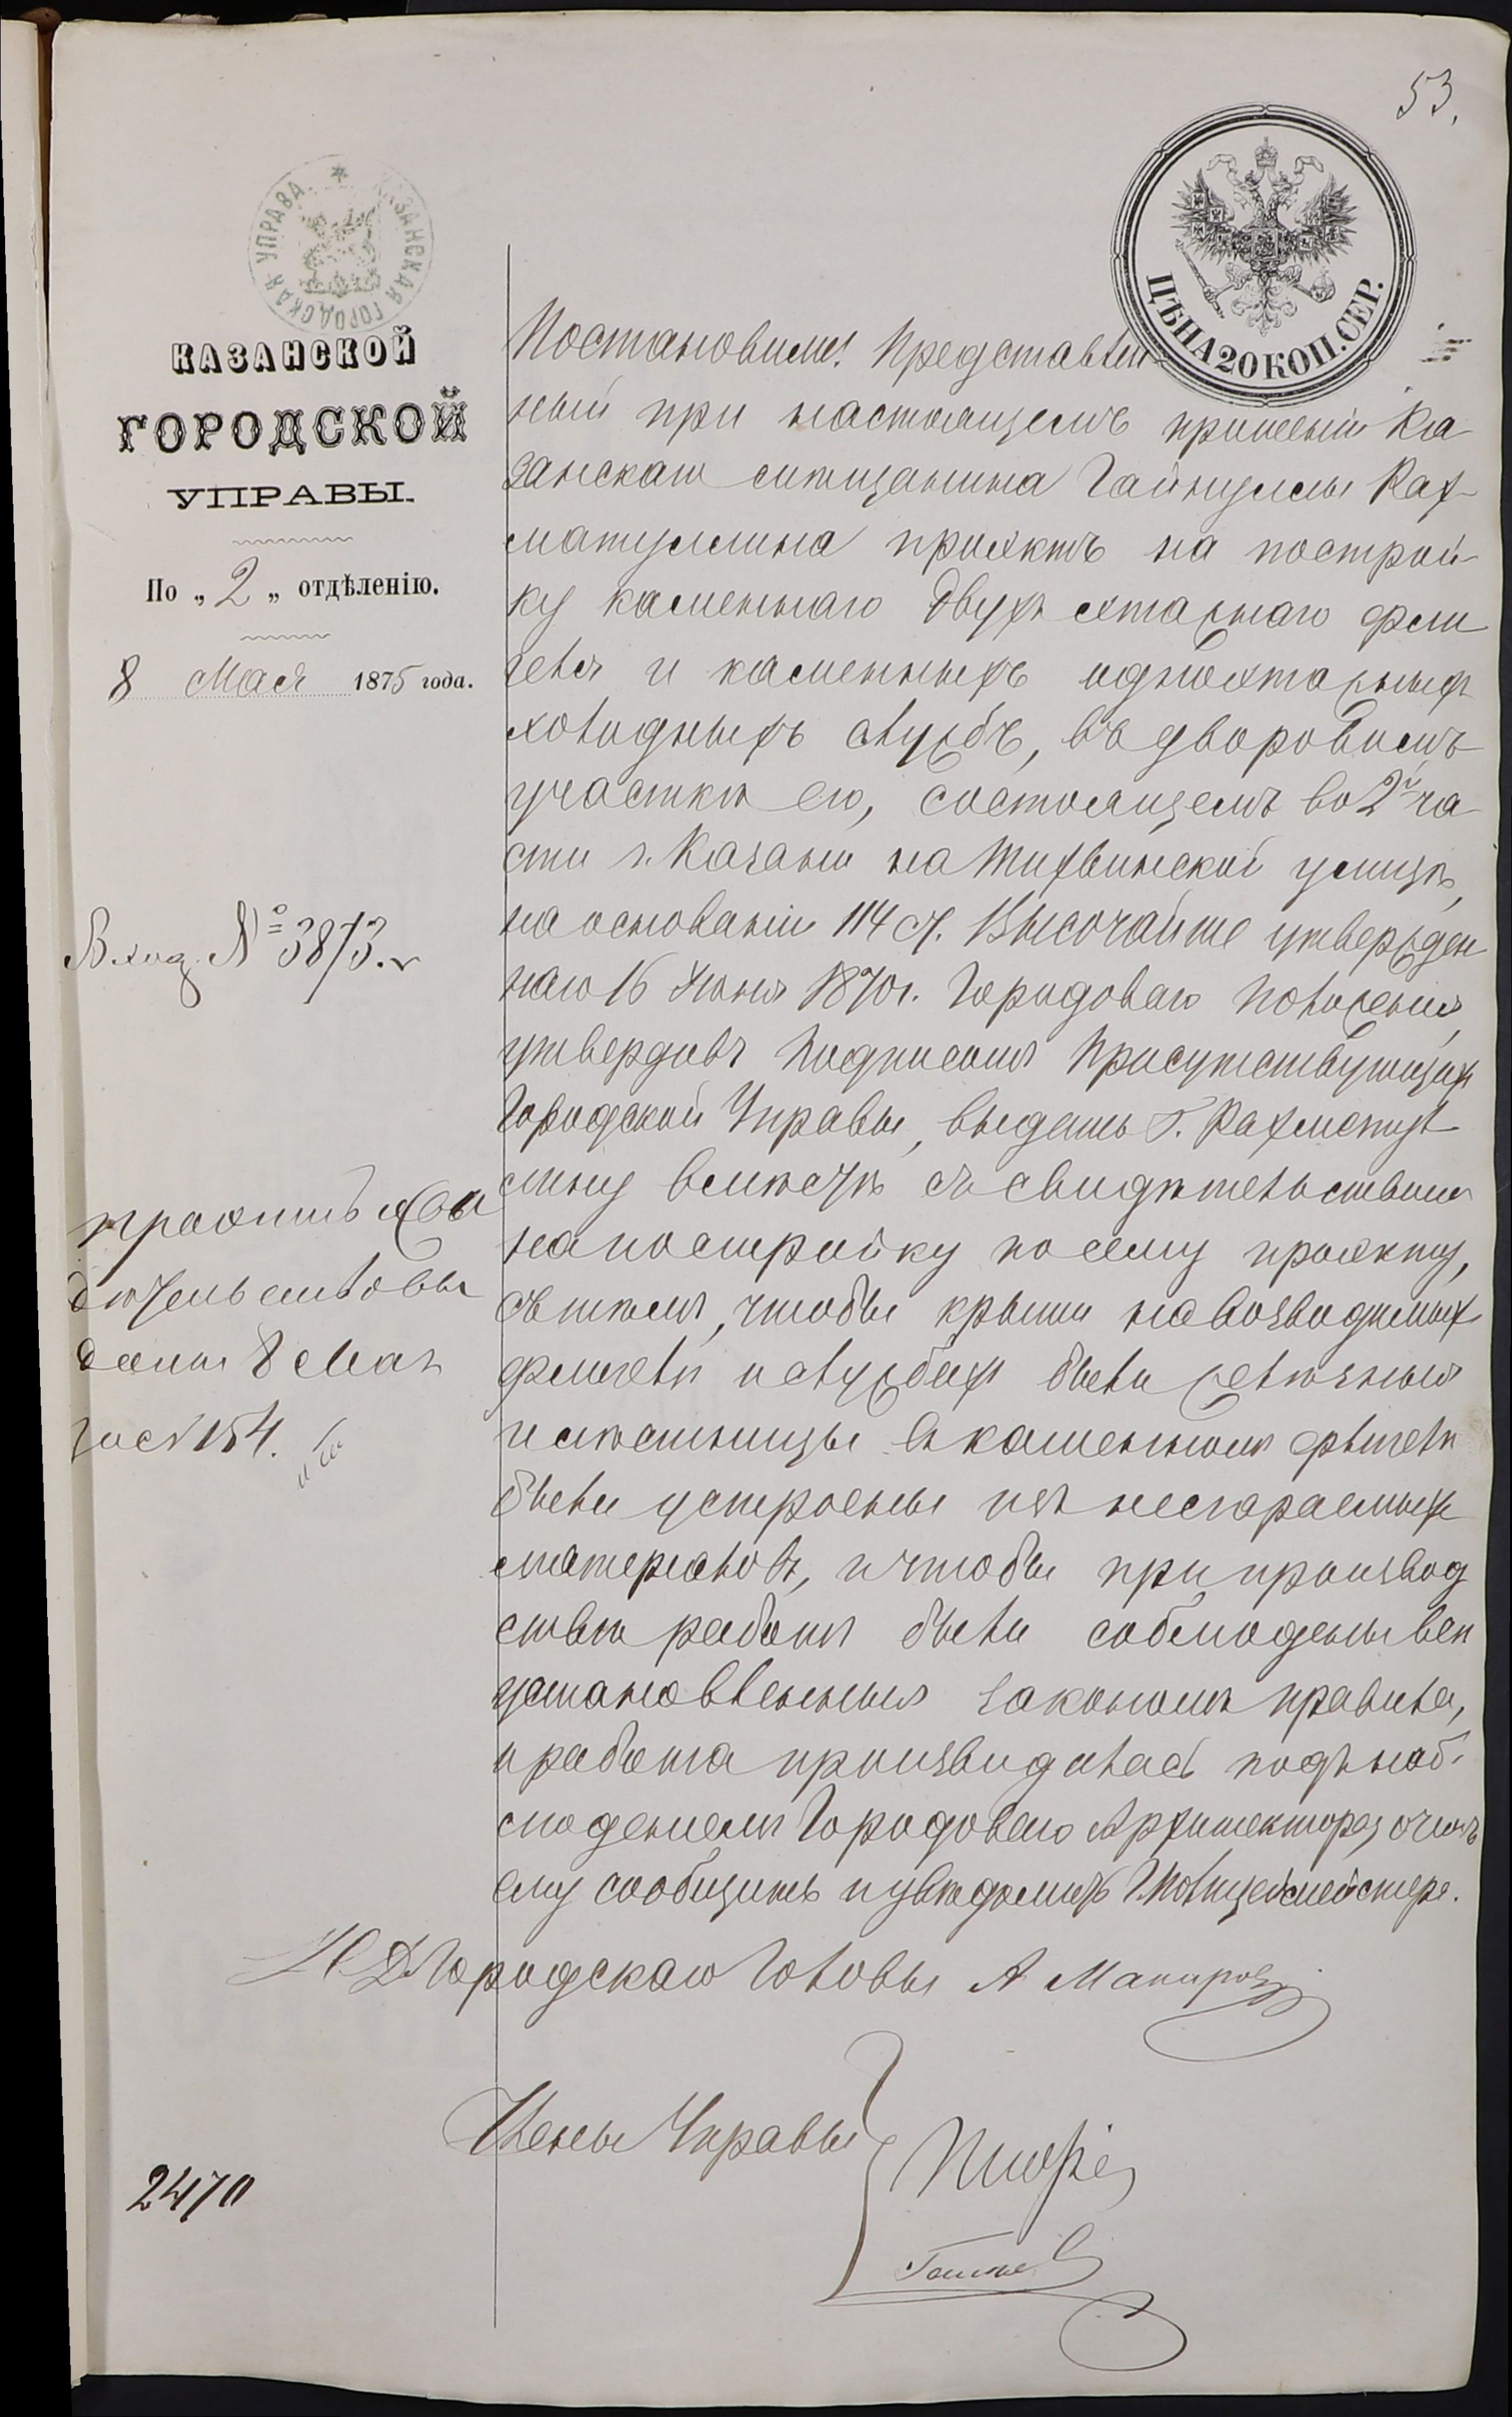 53.
КАЗАНСКАЯ ГОРОДСКАЯ УПРАВА
ЦѢНА 20 КОП. СЕР.
КАЗАНСКОЙ
ГОРОДСКОЙ
УПРАВЫ.
По „2„ отдѣленію.
8 Мая 1875 года.
Вход. № 3873.
Проэктъ и сви
дѣтельство вы
даны 8 Мая
за № 154.
2470
Постановили: Представлен
ный при настоящемъ прошеніи Ка
занскаго мѣщанина Гайнуллы Рах-
матуллина проэктъ на построй-
ку каменнаго двухъ этажнаго фли
геля и каменныхъ одноэтажныхъ
холодныхъ службъ, въ дворовомъ
участкѣ его, состоящемъ во 2й ча
сти г. Казани на Тихвинской улицѣ,
на основаніи 114 ст. Высочайше утвержден
наго 16 Іюня 1870 г. Городоваго Положенія,
утвердивъ подписомъ Присутствующихъ
Городской Управы, выдать Г. Рахматул
лину вмѣстѣ съ свидѣтельствомъ
на постройку по сему проэкту,
съ тѣмъ, чтобы крыши на возводимыхъ
флигелѣ и службахъ были желѣзныя
и лѣстницы въ каменномъ флигелѣ
были устроены изъ несгораемыхъ
матерьяловъ, и чтобы при производ
ствѣ работъ были соблюдены всѣ
установленныя закономъ правила,
и работа производилась подъ наб-
люденіемъ Городоваго Архитектора, о чемъ
ему сообщить и увѣдомить Полицеймейстера.
И. Д. Городскаго Головы А
Члены Управы